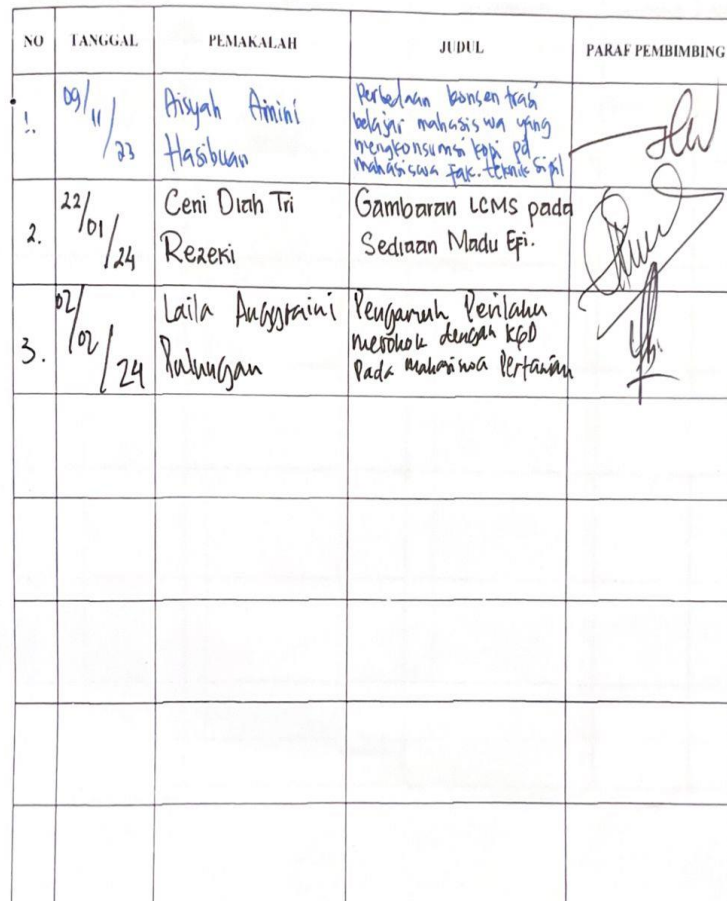 NO TANGGAL PEMAKALAH JUDUL PARAF PEMBIMBING
1. 09/11/23
Aisyah Amini
Hasibuan
Perbedaan konsentrasi
belajar mahasiswa yang
mengkonsumsi kopi pd
mahasiswa Fak. teknik Sipil
2. 22/01/24
Ceni Diah Tri
Rezeki
Gambaran LCMS pada
Sediaan Madu Efi.
3. 02/02/24
Laila Anggraini
Pulungan
Pengaruh Perilaku
merokok dengan KGD
Pada mahasiswa Pertanian